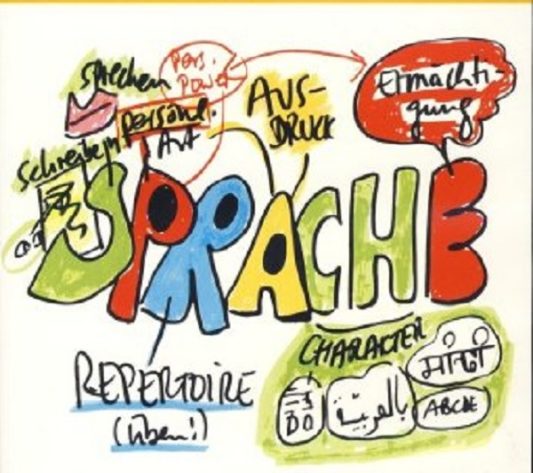 sprechen
pers.
power
persönl.
Art
AUS-
DRUCK
Ermächti-
gung
schreiben
SPRACHE
REPERTOIRE
(üben!)
CHARACTER
بالعربيّة
ABCDE